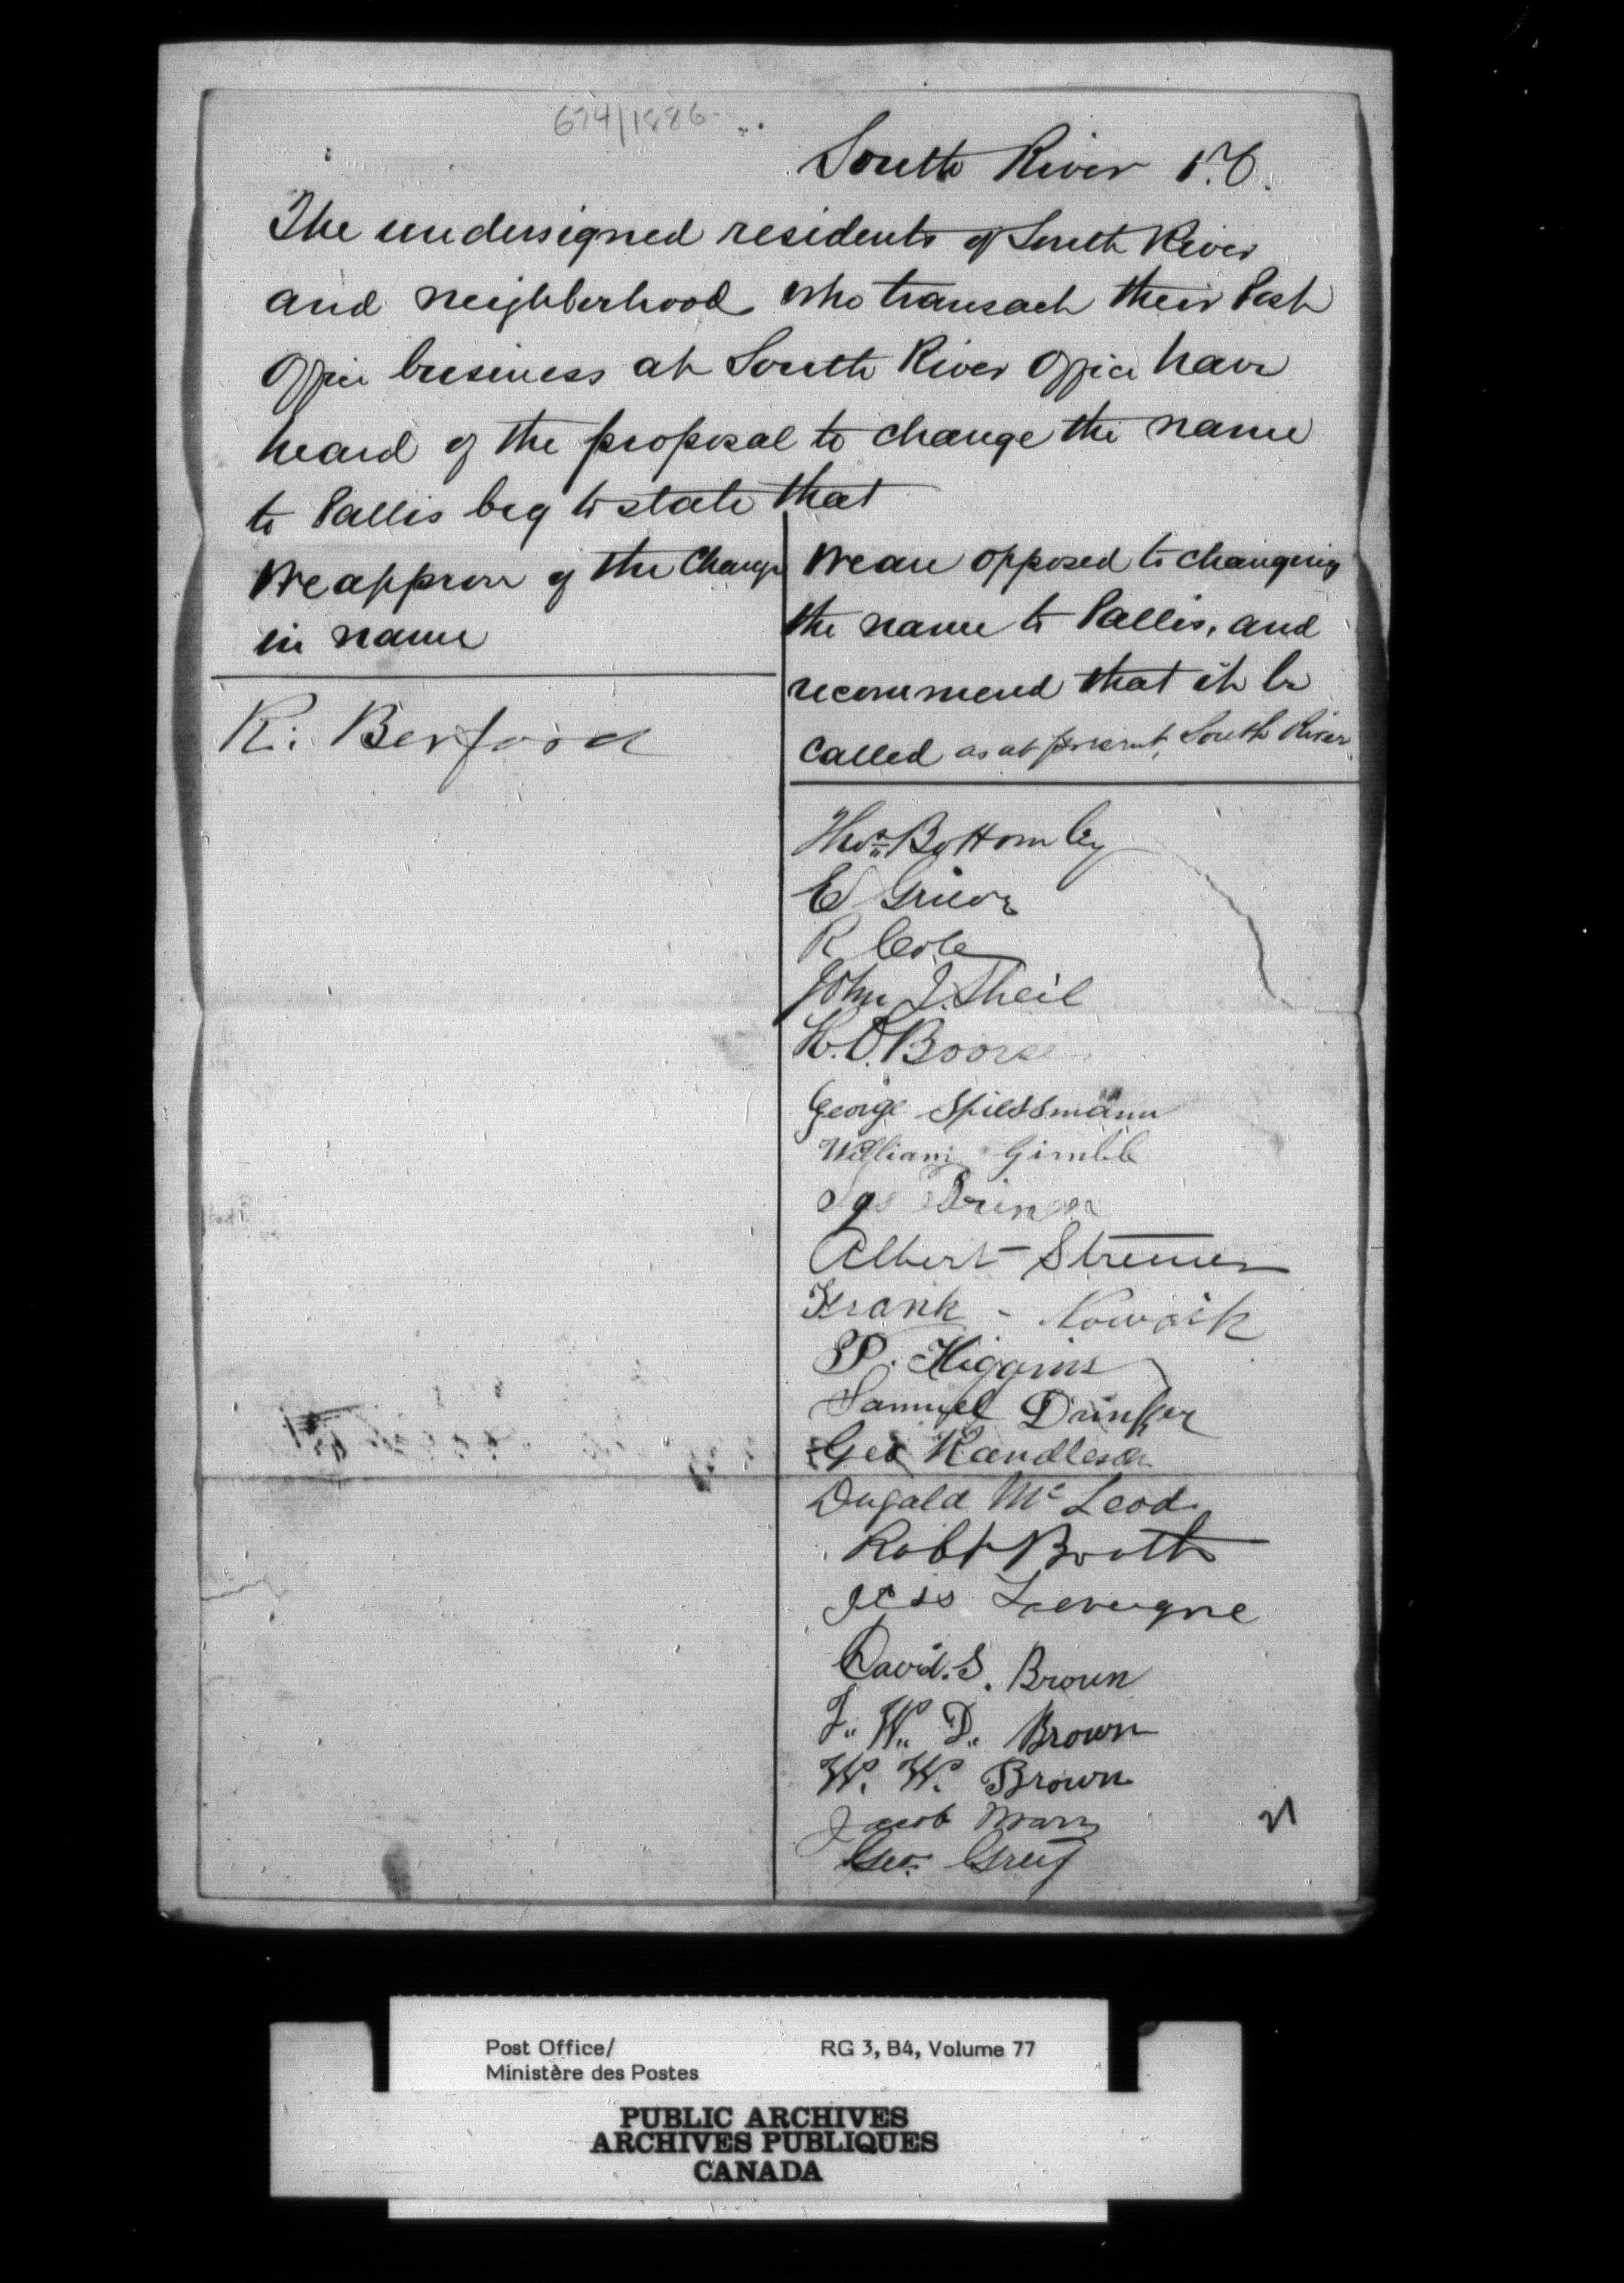 674/1886
South River P.O.
The undersigned residents of South River
and neighborhood who transact their Post
Office business at South River Office have
heard of the proposal to change the name
to Pallis beg to state that
We approve of the Change
in name
R. Berford
We are opposed to changing
the name to Pallis, and
recommend that it be
called as at present, South River
Thos Bottomley
E Grieve
R Cole
John J. Sheil
George Spiessmann
William Gimble
Albert
Frank - Nowack
P. Higgins
Samuel Drinker
Geo
Dugald McLeod
Robt Booth
Jess Lavergne
David. S. Brown
F. W. D. Brown
W. W. Brown
Jacob Marr
Geo. Greig
21
Post Office/
Ministère des Postes
RG 3, B4, Volume 77
PUBLIC ARCHIVES
ARCHIVES PUBLIQUES
CANADA